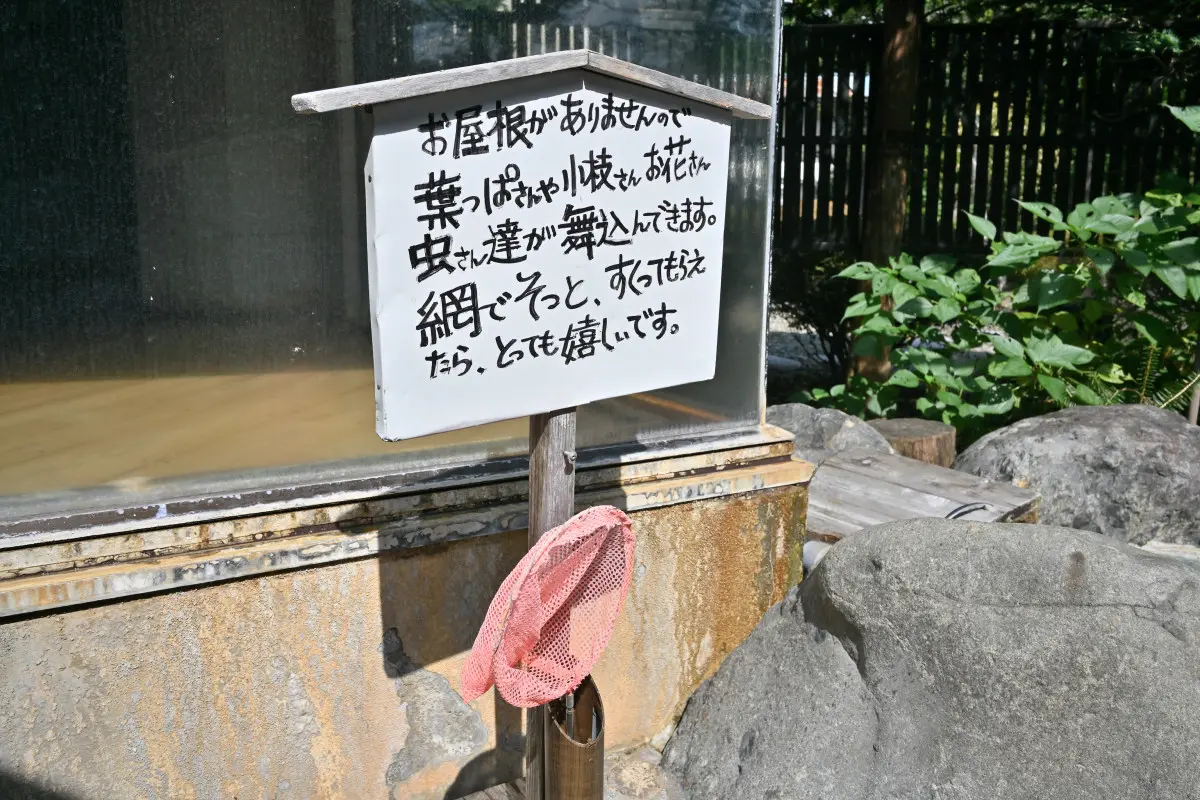 お屋根がありませんので
葉っぱさんや小枝さんお花さん
虫さん達が舞込んできます。
網でそっと、すくってもらえ
たら、とっても嬉しいです。